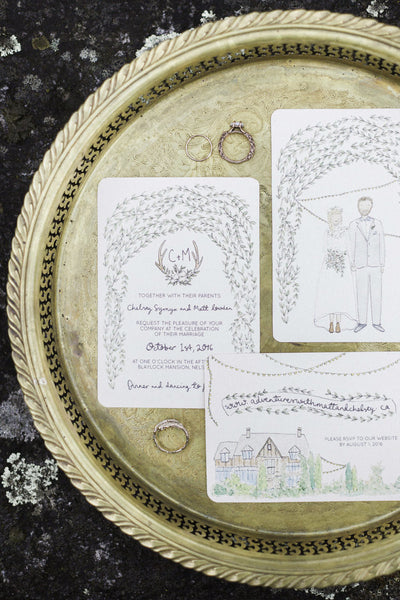 C + M
TOGETHER WITH THEIR PARENTS
Chelsey and Matt
REQUEST THE PLEASURE OF YOUR
COMPANY AT THE CELEBRATION
OF THEIR MARRIAGE
October 1st, 2016
AT ONE O'CLOCK IN THE
BLAYLOCK MANSION,
Dinner and dancing to
www.adventureswithmattandchelsey.ca
PLEASE RSVP TO OUR WEBSITE
BY AUGUST 1, 2016